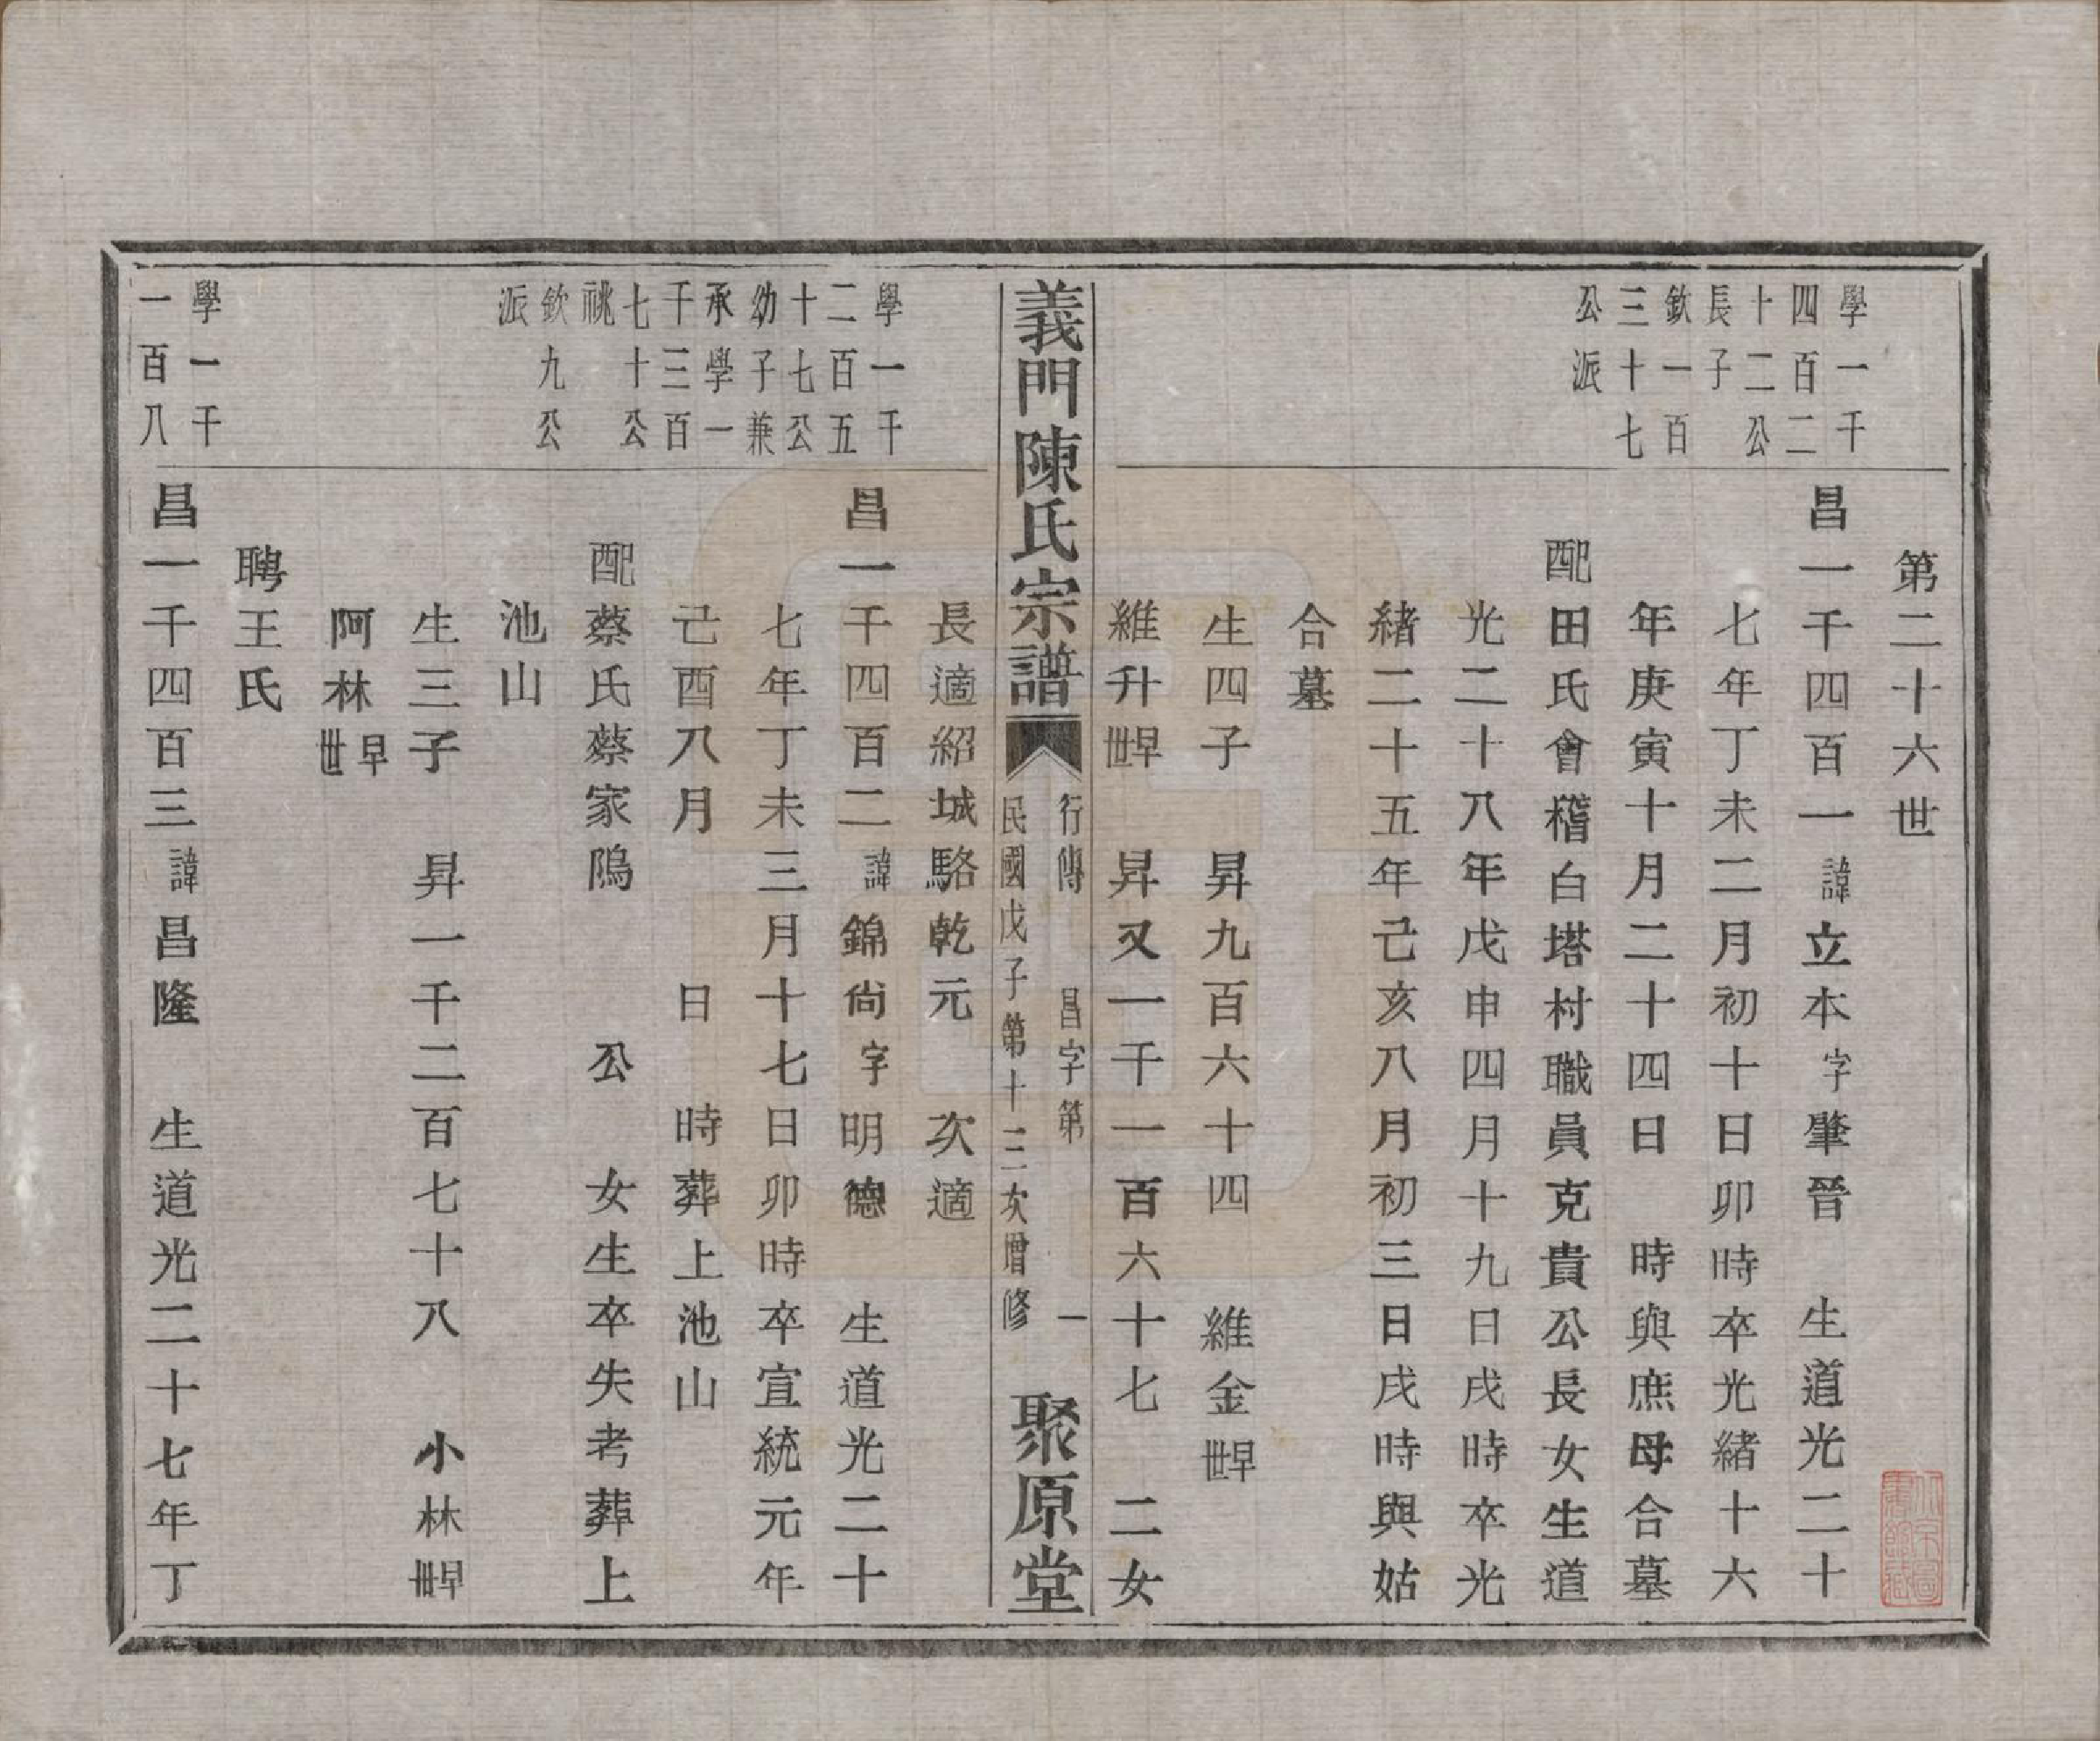 第二十六世
學一千
四百二
十二公
長子
欽一百
三十七
公派
昌一千四百一諱立本字肇晉　生道光二十
七年丁未二月初十日卯時卒光緒十六
年庚寅十月二十四日　時與庶母合墓
配田氏會稽白塔村職員克貴公長女生道
光二十八年戊申四月十九日戌時卒光
緒二十五年己亥八月初三日戌時與姑
合墓
生四子　昇九百六十四　維金早世
維升早世　昇又一千一百六十七　二女
義門陳氏宗譜
行傳　昌字第　一
民國戊子第十三次增修
聚原堂
長適紹城駱乾元　次適
學一千
二百五
十七公
幼子兼
承學一
千三百
七十公
祧
欽九公
派
昌一千四百二諱錦尚字明德　生道光二十
七年丁未三月十七日卯時卒宣統元年
己酉八月　日　時葬上池山
配蔡氏蔡家隖　公　女生卒失考葬上
池山
生三子　昇一千二百七十八　小林早世
阿林早世
聘王氏
學一千
一百八
昌一千四百三諱昌隆　生道光二十七年丁